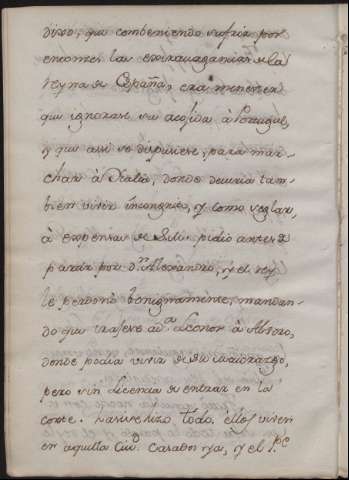 dixo, que combeniendo sufrir por
entonces las extravagancias de la
reyna de España, era menester
que ignorase su acojida à Portugal,
y que assi se dispusiese, para mar-
char à Italia, donde devria tam-
bien vivir incognito, y como seglar,
à expensas de Pidio antes de
partir por Dn. Alexandro, y el rey
le perdonò benignamente, mandan-
do que traxese a Da. Leonor à
donde podia vivir de su maiorazgo,
pero sin licencia de entrar en la
corte. todo, ellos viven
en aquella Ciud. Casados ya, y el Pe